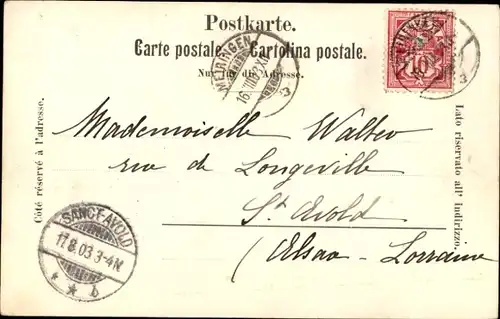 Postkarte.
Carte postale. Cartolina postale.
Nur für die Adresse.
MEIRINGEN
16.VIII.
3
10
3
Côté réservé à l'adresse.
Lato riservato all' Indirizzo.
Mademoiselle Walter
rue de Longeville
St Avold
(Alsace-Lorraine
SANCT-AVOLD
17.8.03 3-4N
* * b